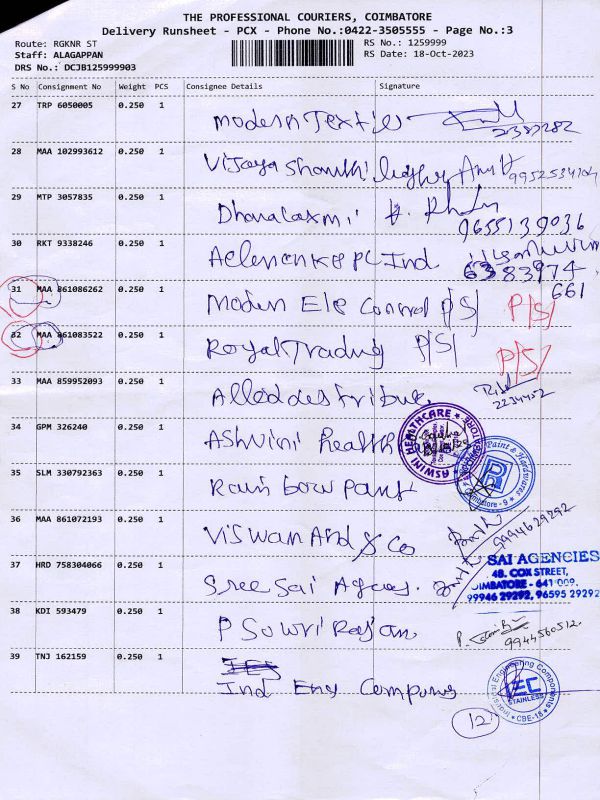 THE PROFESSIONAL COURIERS, COIMBATORE
Delivery Runsheet - PCX - Phone No.:0422-3505555 - Page No.:3
Route: RGKNR ST
Staff: ALAGAPPAN
DRS No.: DCJB125999903
RS No.: 1259999
RS Date: 18-Oct-2023
S No Consignment No Weight PCS Consignee Details Signature
27 TRP 6050005 0.250 1 Modern Textile 2387282
28 MAA 102993612 0.250 1 Vijaya Shanthi 9952534104
29 MTP 3057835 0.250 1 Dhanalaxmi 9655139036
30 RKT 9338246 0.250 1 Ind 6383974
661
31 MAA 861086262 0.250 1 Modern Ele Control P/S/ P/S/
32 MAA 861083522 0.250 1 Royal Trading P/S/ P/S/
33 MAA 859952093 0.250 1 Allod distribue 2234452
34 GPM 326240 0.250 1 AShvini health
ASWINI HEALTHCARE
35 SLM 330792363 0.250 1 Rain bow paint
Paint & Hardwares
Coimbatore - 9
36 MAA 861072193 0.250 1 Viswan And & Co 9994629292
37 HRD 758304066 0.250 1 Sree Sai Agencies.
SAI AGENCIES
48, COX STREET,
COIMBATORE - 641 009.
99946 29292, 96595 29292
38 KDI 593479 0.250 1 P Sowri Rajan P. 9944560512.
39 TNJ 162159 0.250 1 Ind Eng Compuny
Industrial Engineering Components
IEC
STAINLESS
CBE-18
12